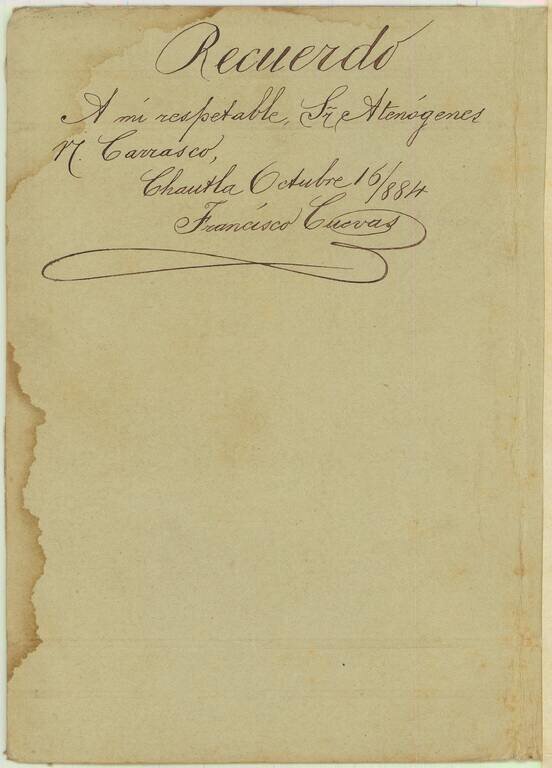 Recuerdo
A mi respetable, Sr. Atenógenes
N. Carrasco,
Chautla Octubre 16/884
Francisco Cuevas